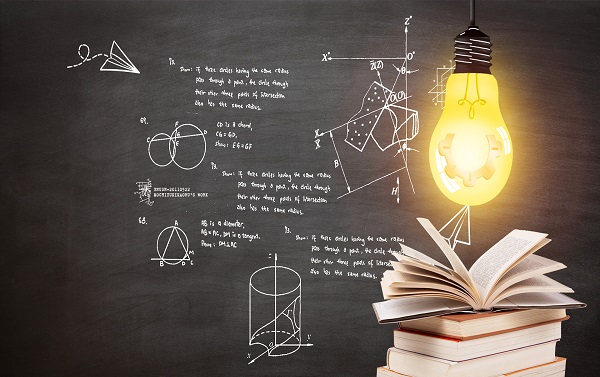 13.
Show: If three circles having the same radius
pass through a point, the circle through
their other three points of intersection
also has the same radius.
CD is a chord,
CG = GD,
Show: EG = GF
F
C
G
D
E
13.
Show: If three circles having the same radius
pass through a point, the circle through
their other three points of intersection
also has the same radius.
AB is a diameter,
AB = AC, DM is a tangent.
Prove: DM⊥AC
A
M
B
O
C
13.
Show: If three circles having the same radius
pass through a point, the circle through
their other three points of
also has the same radius.
Z°
X°
O°
θ
Z(Z)
O(O)
X
B
H